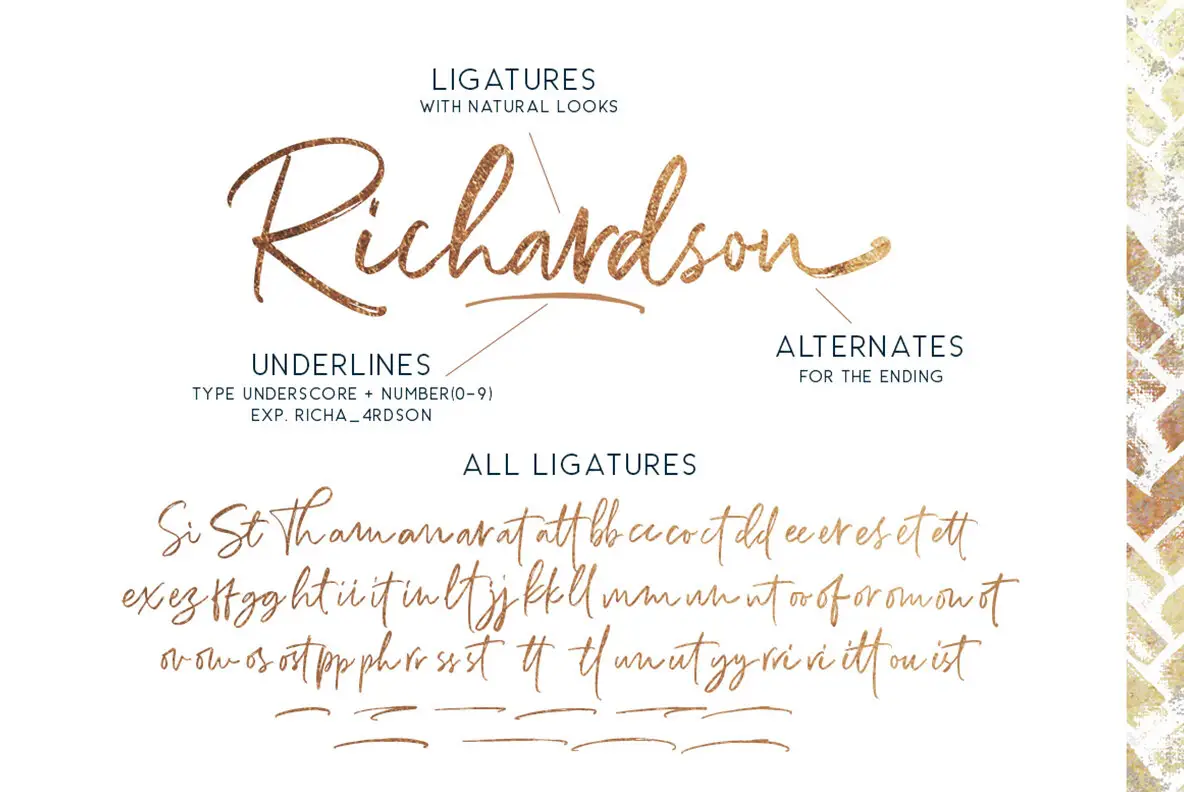 LIGATURES
WITH NATURAL LOOKS
Richardson
UNDERLINES
TYPE UNDERSCORE + NUMBER(0-9)
EXP. RICHA_4RDSON
ALTERNATES
FOR THE ENDING
ALL LIGATURES
Si St Th am an ar at att bb cc co ct dd ee er es et ett
ex ez ff gg ht ii it in lt jj kk ll mm nn nt oo of or om on ot
ov ow os ost pp ph rr ss st tt tl un ut yy rri vi itt ou ist